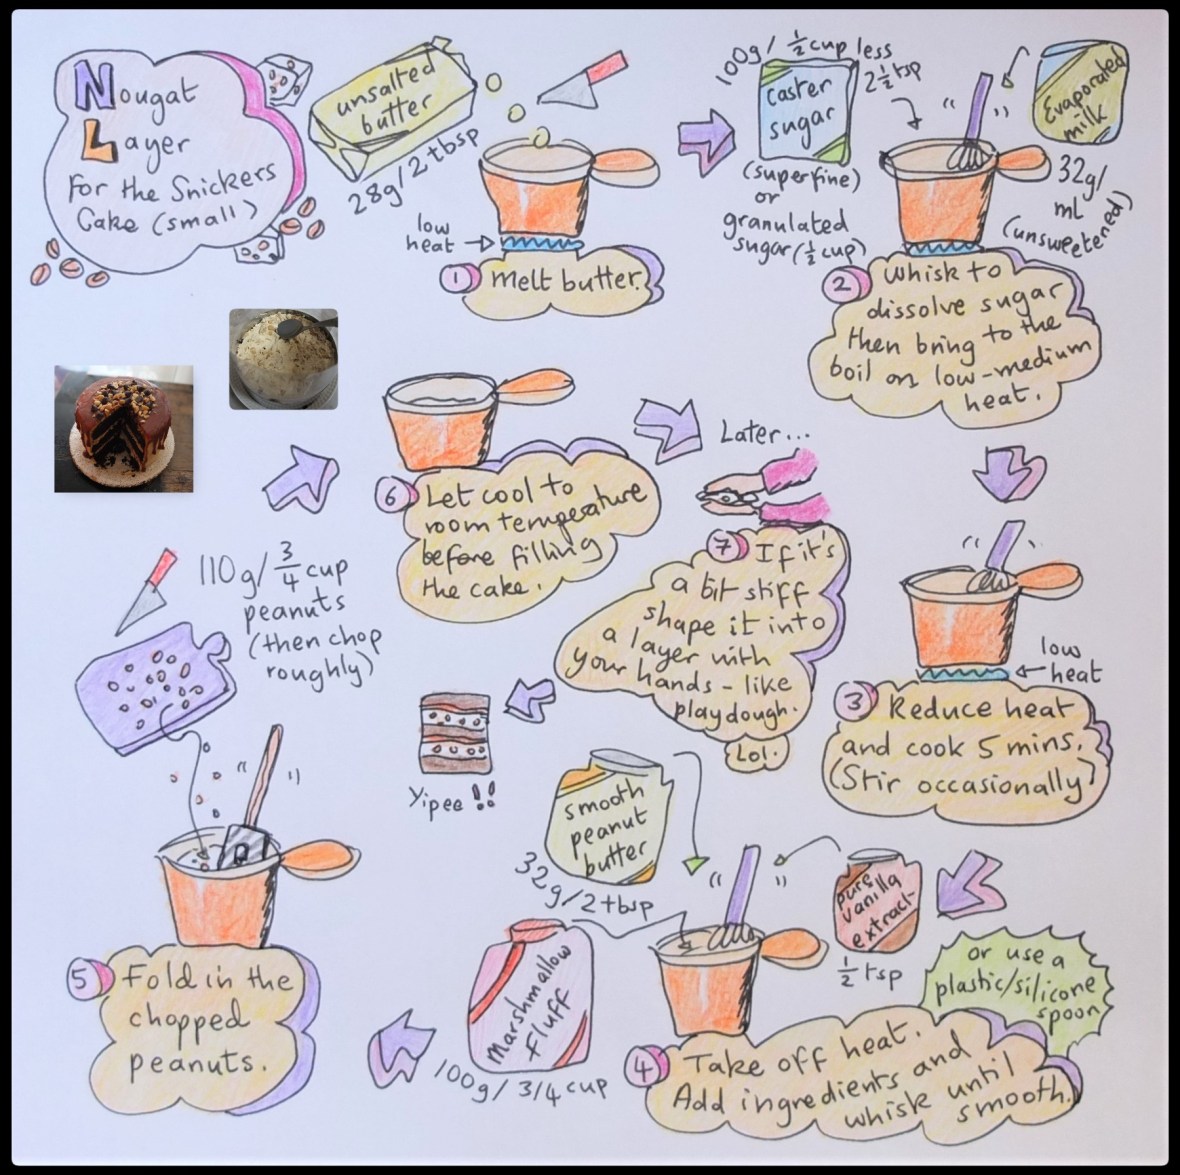 Nougat
Layer
For the Snickers
Cake (small)
unsalted
butter
28g/2tbsp
low
heat
1 Melt butter.
100g/ 1/2 cup less
2 1/2 tsp
caster
sugar
(superfine)
or
granulated
sugar (1/2 cup)
Evaporated
milk
32g/
ml
(unsweetened)
2 Whisk to
dissolve sugar
then bring to the
boil on low-medium
heat.
low
heat
3 Reduce heat
and cook 5 mins.
(Stir occasionally)
smooth
peanut
butter
32g/2tbsp
pure
vanilla
extract
1/2 tsp
Marshmallow
Fluff
100g/ 3/4 cup
or use a
plastic/silicone
spoon
4 Take off heat.
Add ingredients and
whisk until
smooth.
110g/ 3/4 cup
peanuts
(then chop
roughly)
5 Fold in the
chopped
peanuts.
6 Let cool to
room temperature
before filling
the cake.
Later...
7 If it's
a bit stiff
shape it into
a layer with
your hands - like
playdough.
Lol.
Yipee !!